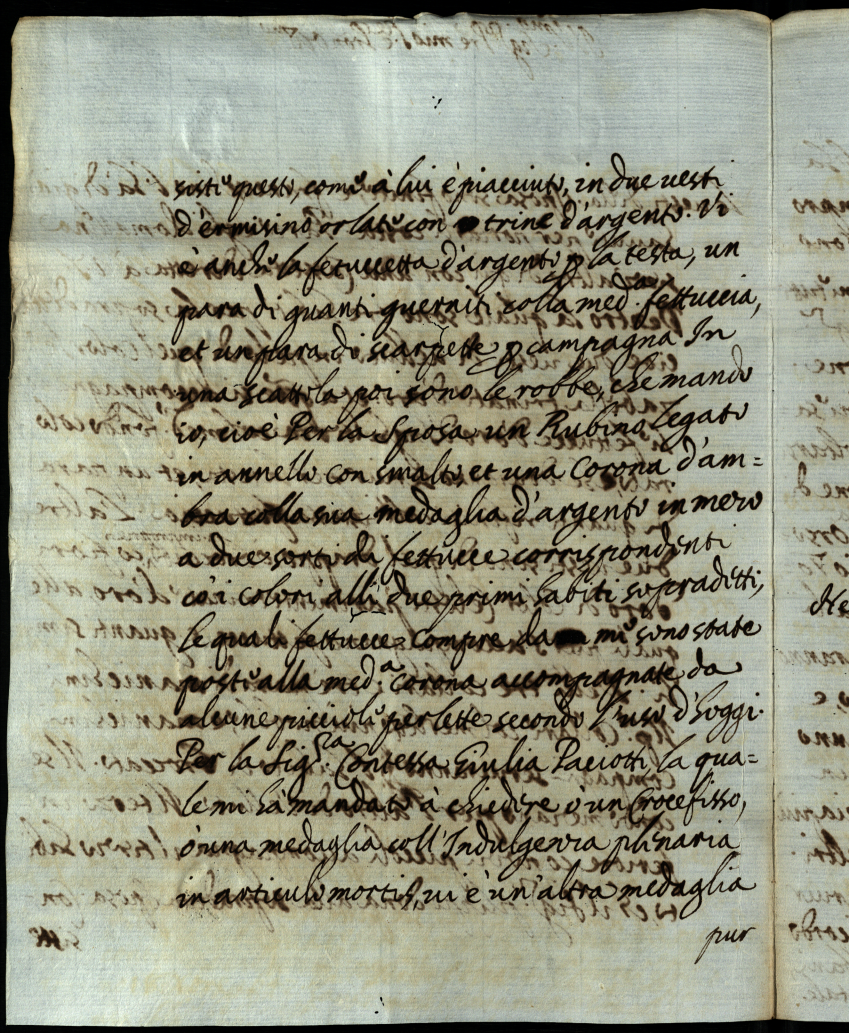 sisti questo, come à lui è piacciuto, in due uesti
d'ermisino orlate con trine d'argento. Vi
è anche la fetuccetta d'argento p la testa, un
para di guanti guerniti colla med.ª fettuccia,
et un para di scarpette p campagna In
una scattola poi sono le robbe, che mando
io, cioè Per la Sposa un Rubino legato
in annello con smalto, et una Corona d'am=
bra colla sua medaglia d'argento in mezo
a due sorti di fettucce corrispondenti
co' i colori alli due primi habiti sopradetti,
le quali fettucce compre da me sono state
poste alla med.ª corona accompagnate da
alcune picciole perlette secondo l'uso d'hoggi.
Per la Sig.ra Contessa Giulia Paciotti, la qua=
le mi hà mandato à chiedere ò un Crocefisso,
ò una medaglia coll'Indulgenza plenaria
in articulo mortis, ui è un'altra medaglia
pur